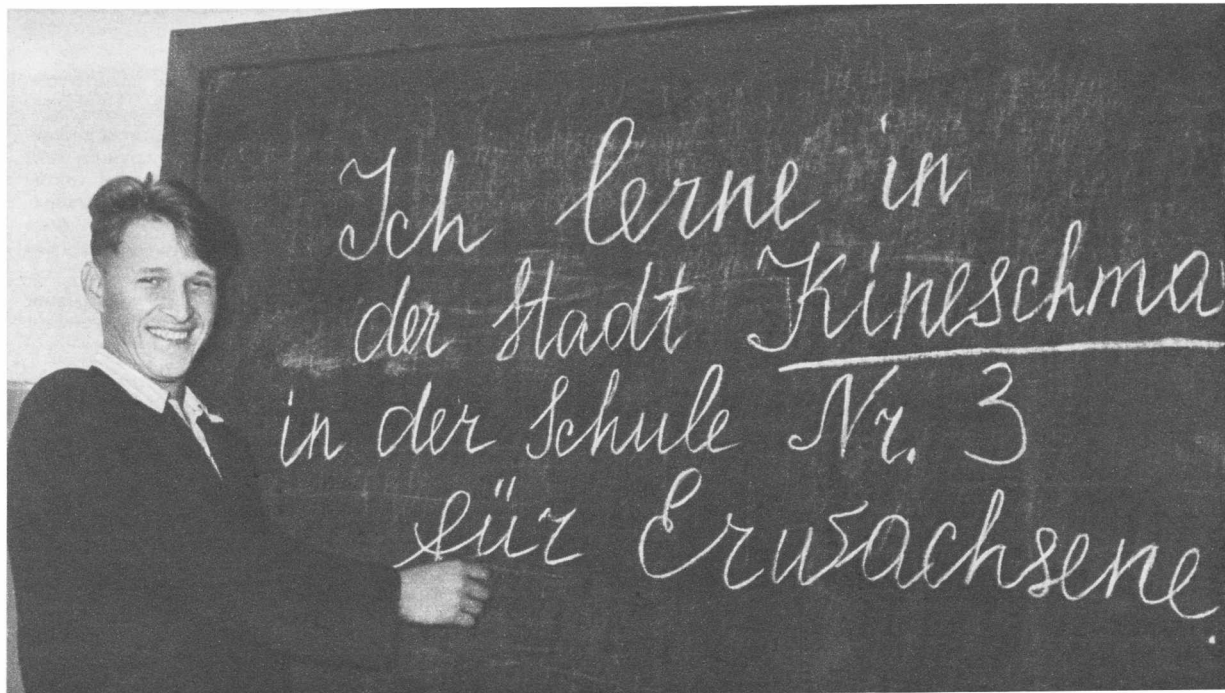 Ich lerne in
der Stadt Kineschma
in der Schule Nr. 3
für Erwachsene.